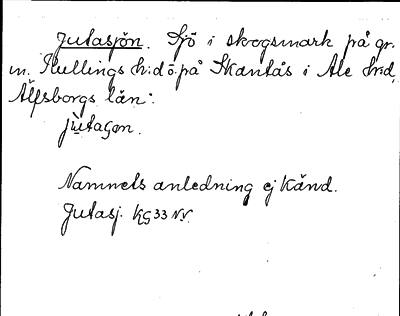 Jutasjön. Sjö i skogsmark på gr.
m. Kullings h:d ö. på Skantås i Ale h:d,
Älfsborgs län:
Namnets anledning ej känd.
Jutasj. KG 33 NV.